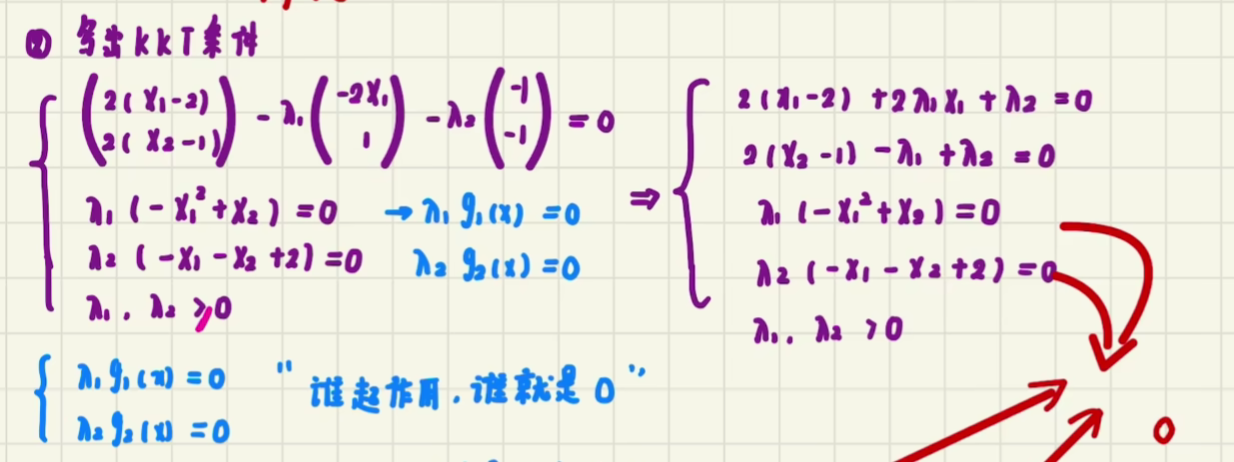 ② 写出KKT条件
{ ( 2(x₁-2) ; 2(x₂-1) ) - λ₁ ( -2x₁ ; 1 ) - λ₂ ( -1 ; -1 ) = 0
λ₁ (-x₁²+x₂) = 0 → λ₁ g₁(x) = 0
λ₂ (-x₁-x₂+2) = 0 λ₂ g₂(x) = 0
λ₁, λ₂ ≥ 0
⇒ { 2(x₁-2) + 2λ₁x₁ + λ₂ = 0
2(x₂-1) - λ₁ + λ₂ = 0
λ₁ (-x₁²+x₂) = 0
λ₂ (-x₁-x₂+2) = 0
λ₁, λ₂ > 0
{ λ₁ g₁(x) = 0
λ₂ g₂(x) = 0
"谁起作用,谁就是0"
0